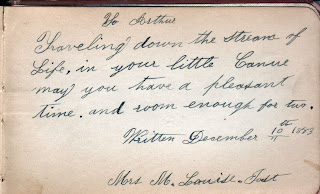 To Arthur
Traveling down the Stream of
Life, in your little Canoe
may you have a pleasant
time. and room enough for two.
Written December 10th 1883
Mrs M. Louise